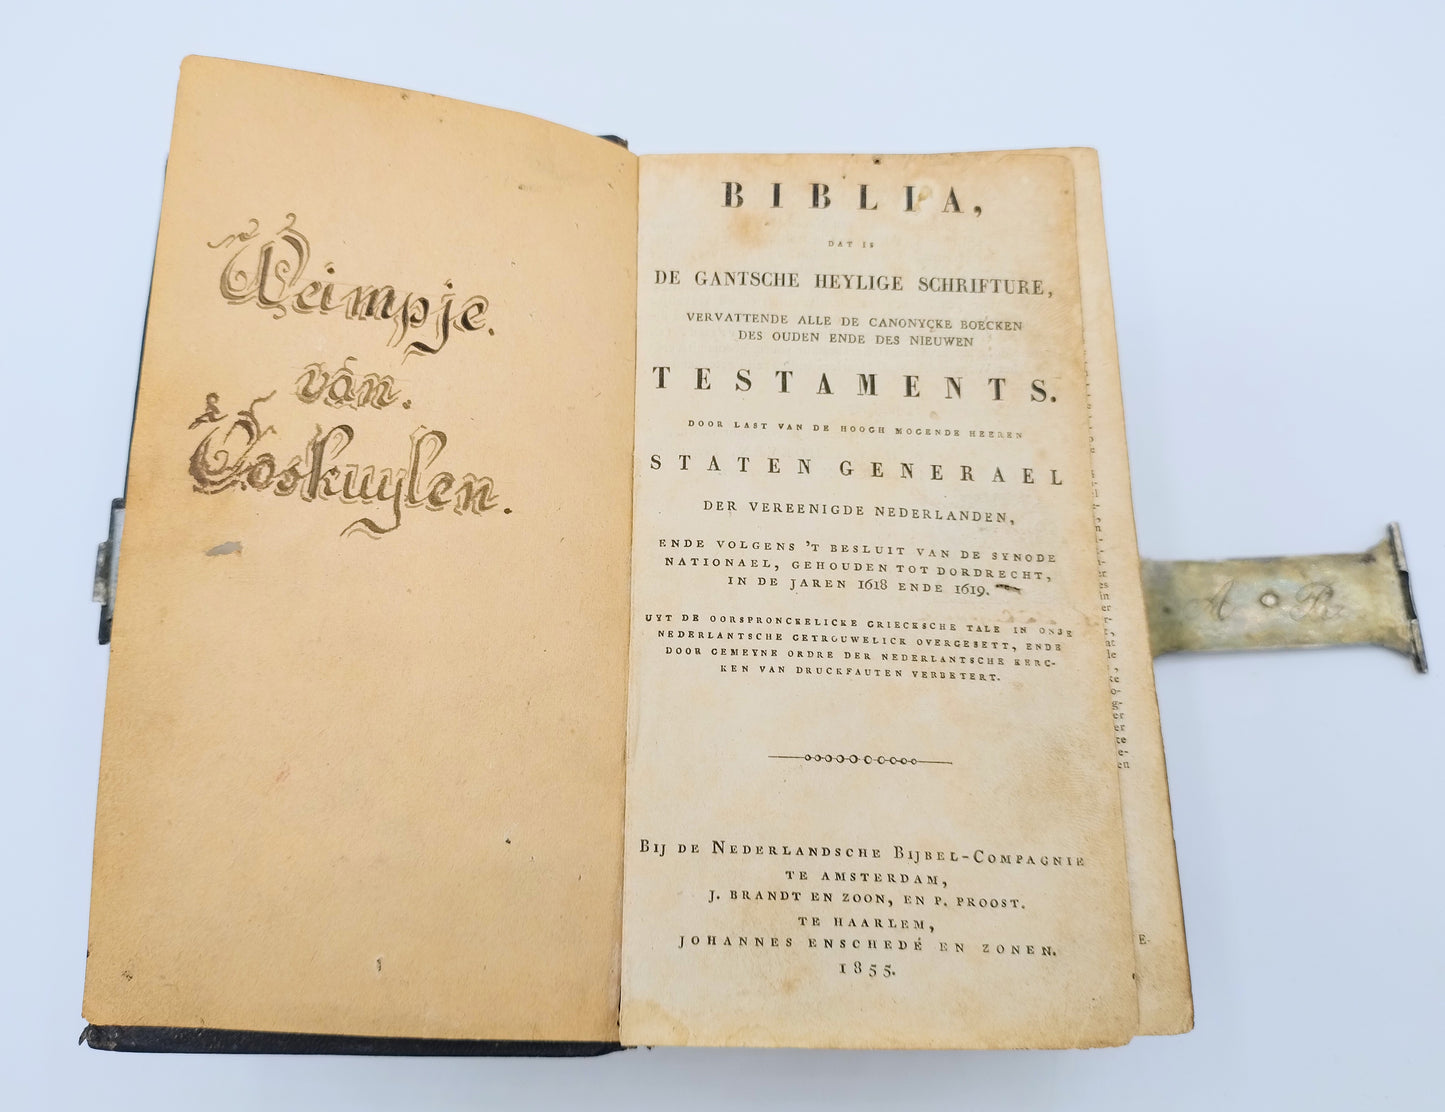 Weimpje.
van.
Voskuylen.
BIBLIA,
DAT IS
DE GANTSCHE HEYLIGE SCHRIFTURE,
VERVATTENDE ALLE DE CANONYCKE BOECKEN
DES OUDEN ENDE DES NIEUWEN
TESTAMENTS.
DOOR LAST VAN DE HOOGH MOGENDE HEEREN
STATEN GENERAEL
DER VEREENIGDE NEDERLANDEN,
ENDE VOLGENS 'T BESLUIT VAN DE SYNODE
NATIONAEL, GEHOUDEN TOT DORDRECHT,
IN DE JAREN 1618 ENDE 1619.
UYT DE OORSPRONCKELICKE GRIECKSCHE TALE IN ONSE
NEDERLANTSCHE GETROUWELICK OVERGESETT, ENDE
DOOR GEMEYNE ORDRE DER NEDERLANTSCHE KERC-
KEN VAN DRUCKFAUTEN VERBETERT.
BIJ DE NEDERLANDSCHE BIJBEL-COMPAGNIE
TE AMSTERDAM,
J. BRANDT EN ZOON, EN P. PROOST.
TE HAARLEM,
JOHANNES ENSCHEDÉ EN ZONEN.
1855.
A R